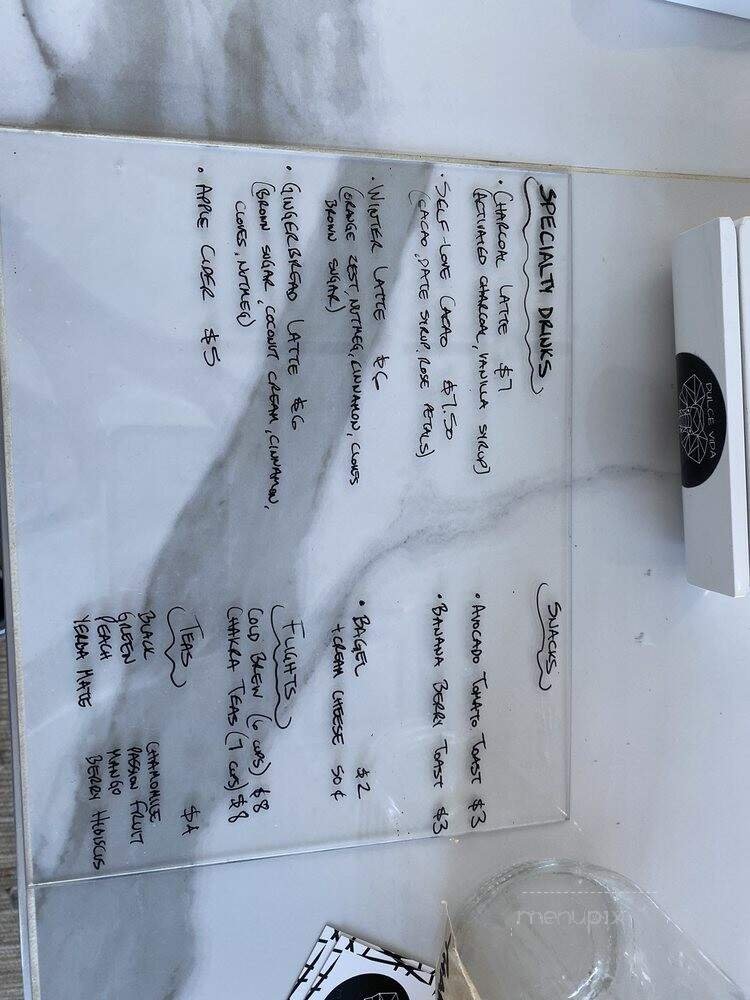 SPECIALTY DRINKS
• CHARCOAL LATTE $7
(ACTIVATED CHARCOAL, VANILLA SYRUP)
• SELF-LOVE CACAO $7.50
(CACAO, DATE SYRUP, ROSE PETALS)
• WINTER LATTE $6
(ORANGE ZEST, NUTMEG, CINNAMON, CLOVES
BROWN SUGAR)
• GINGERBREAD LATTE $6
(BROWN SUGAR, COCONUT CREAM, CINNAMON,
CLOVES, NUTMEG)
• APPLE CIDER $5
SNACKS
• AVOCADO TOMATO TOAST $3
• BANANA BERRY TOAST $3
• BAGEL $2
+ CREAM CHEESE 50¢
FLIGHTS
COLD BREW (6 CUPS) $8
CHAKRA TEAS (7 CUPS) $8
TEAS $4
BLACK CHAMOMILE
GREEN PASSION FRUIT
PEACH MANGO
YERBA MATE BERRY HIBISCUS
DULCE VIDA
menupix